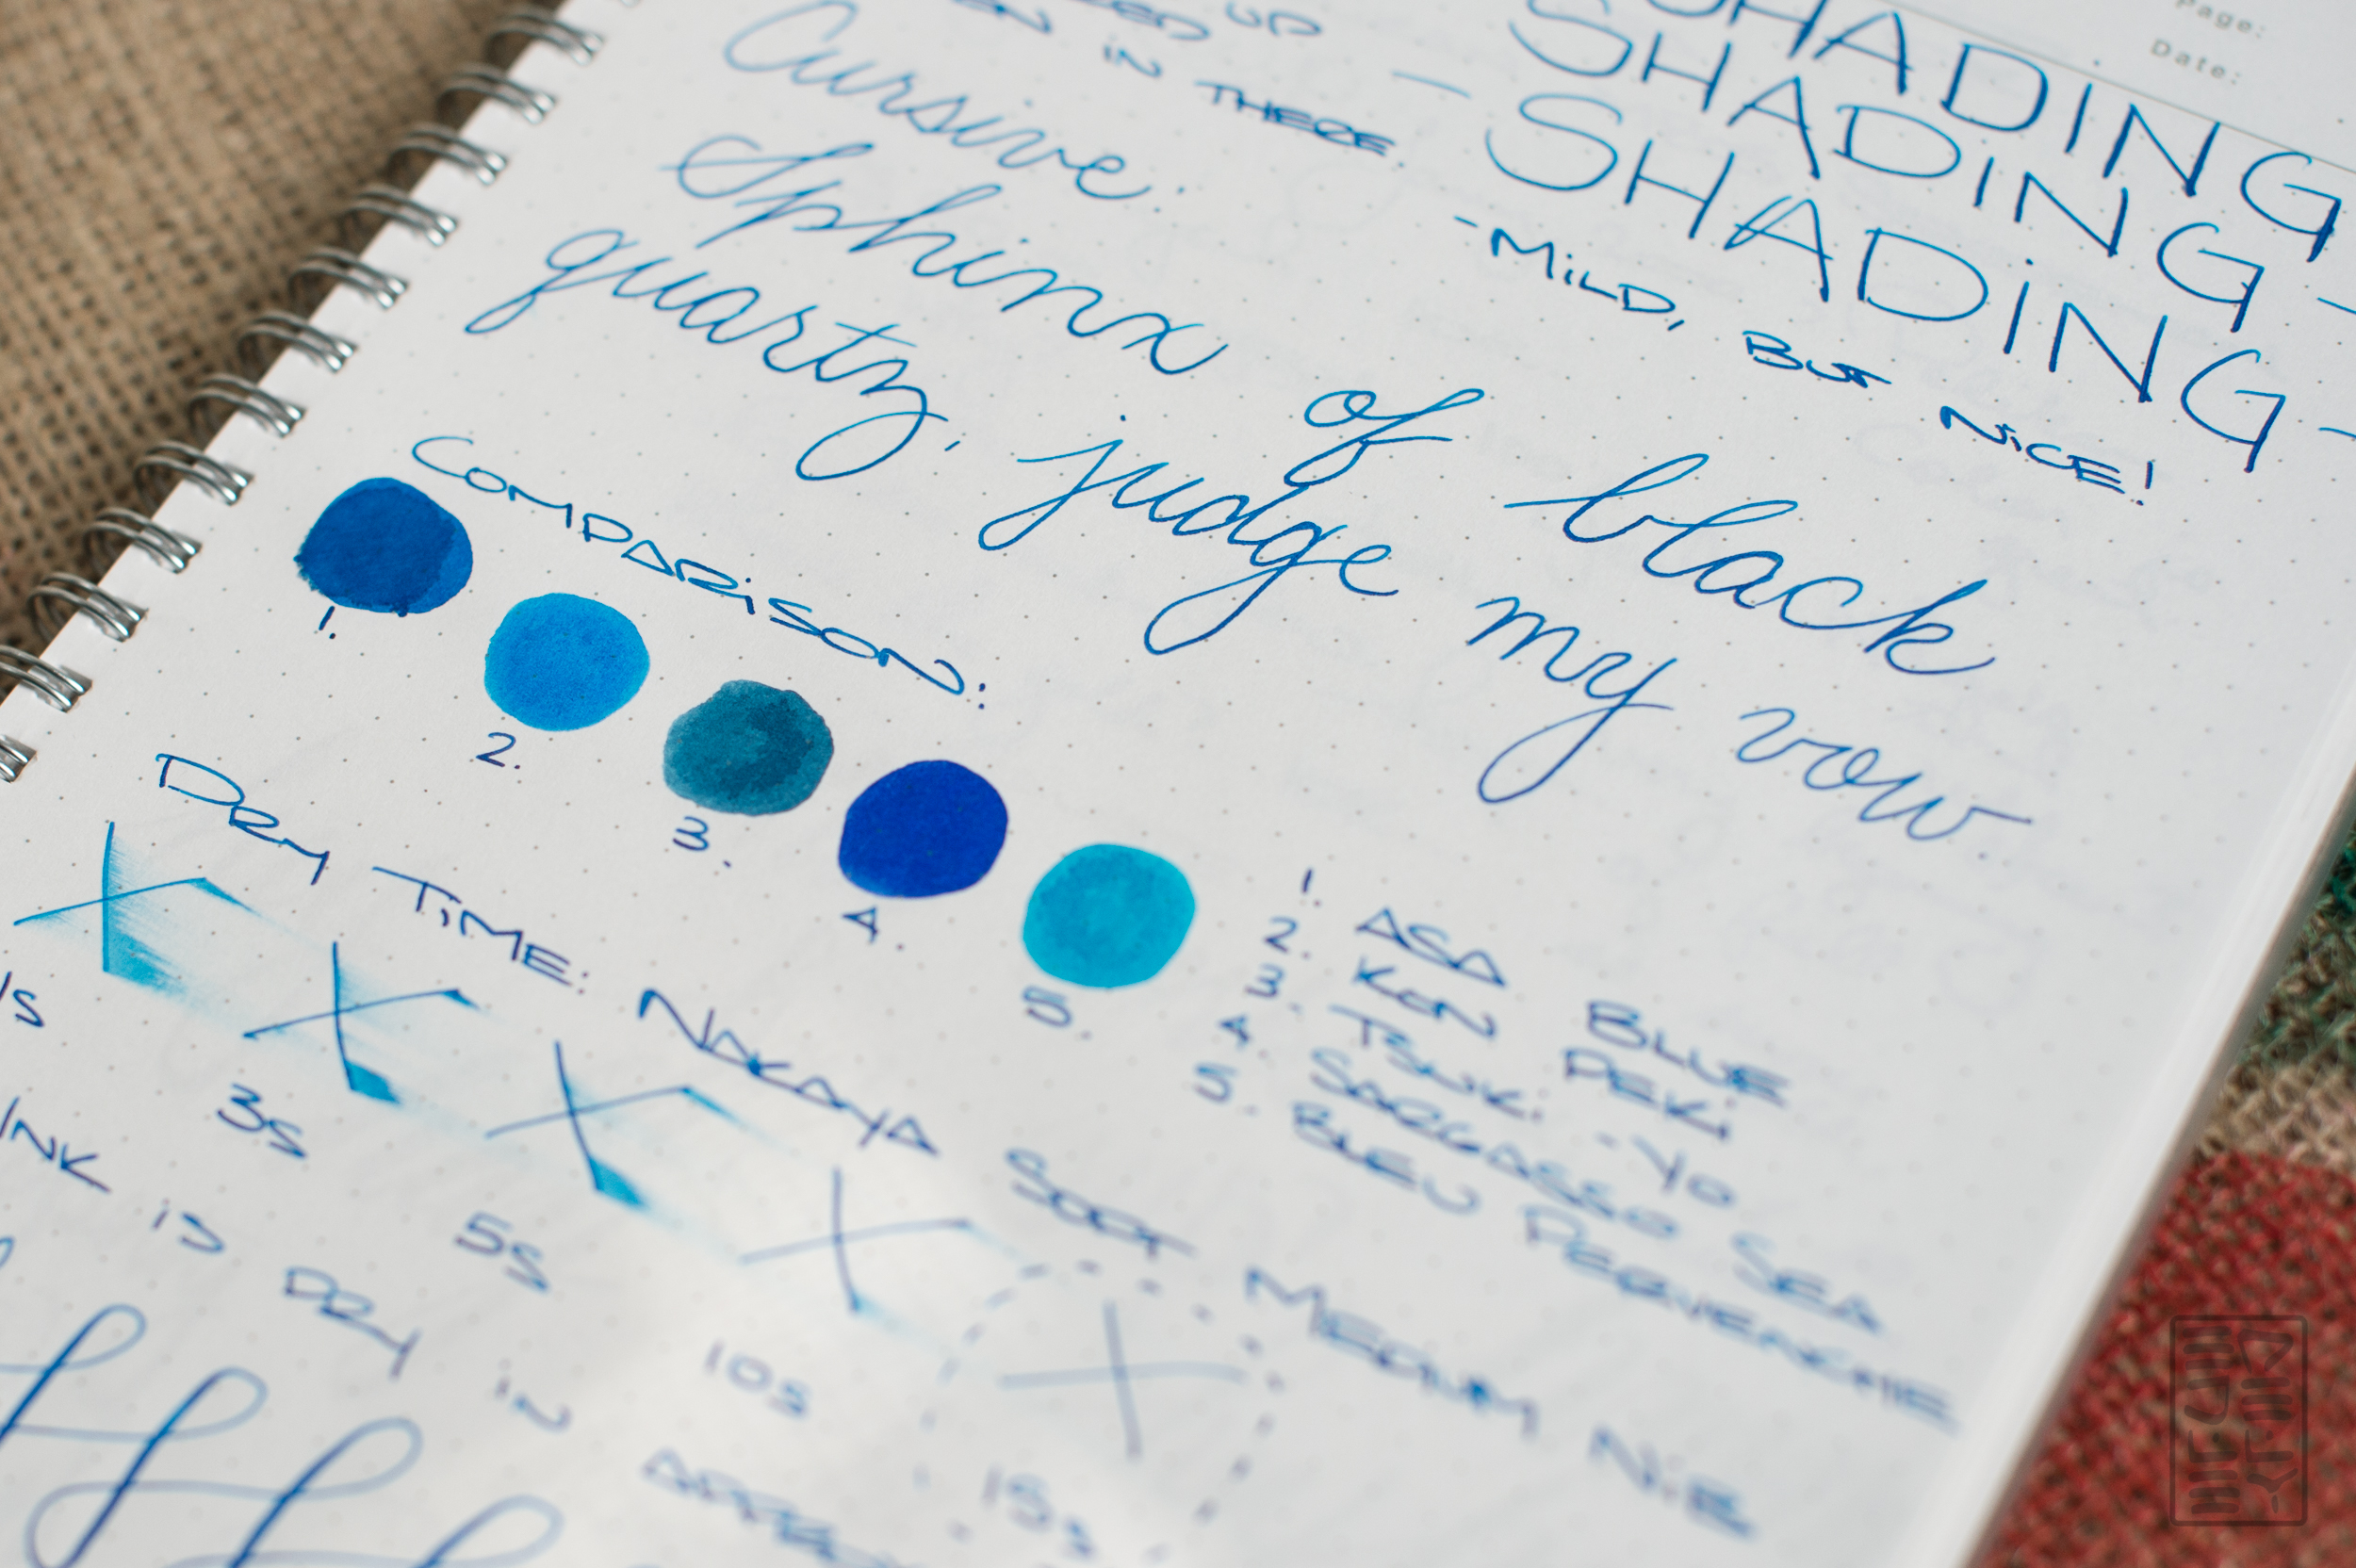 Page:
Date:
SHADING
SHADING -
- SHADING -
- MiLD, BUT NiCE!
iN THERE.
Cursive:
Sphinx of black
quartz, judge my vow.
COMPARiSON:
1.
2.
3.
4.
5.
1. ASA BLUE
2. KON-PEKi
3. TSUKi-YO
4. SARGASSO SEA
5. BLEU PERVENCHE
DRY TiME: NAKAYA SOFT MEDiUM NiB
1s
3s
5s
10s
15s
INK iS DRY iN